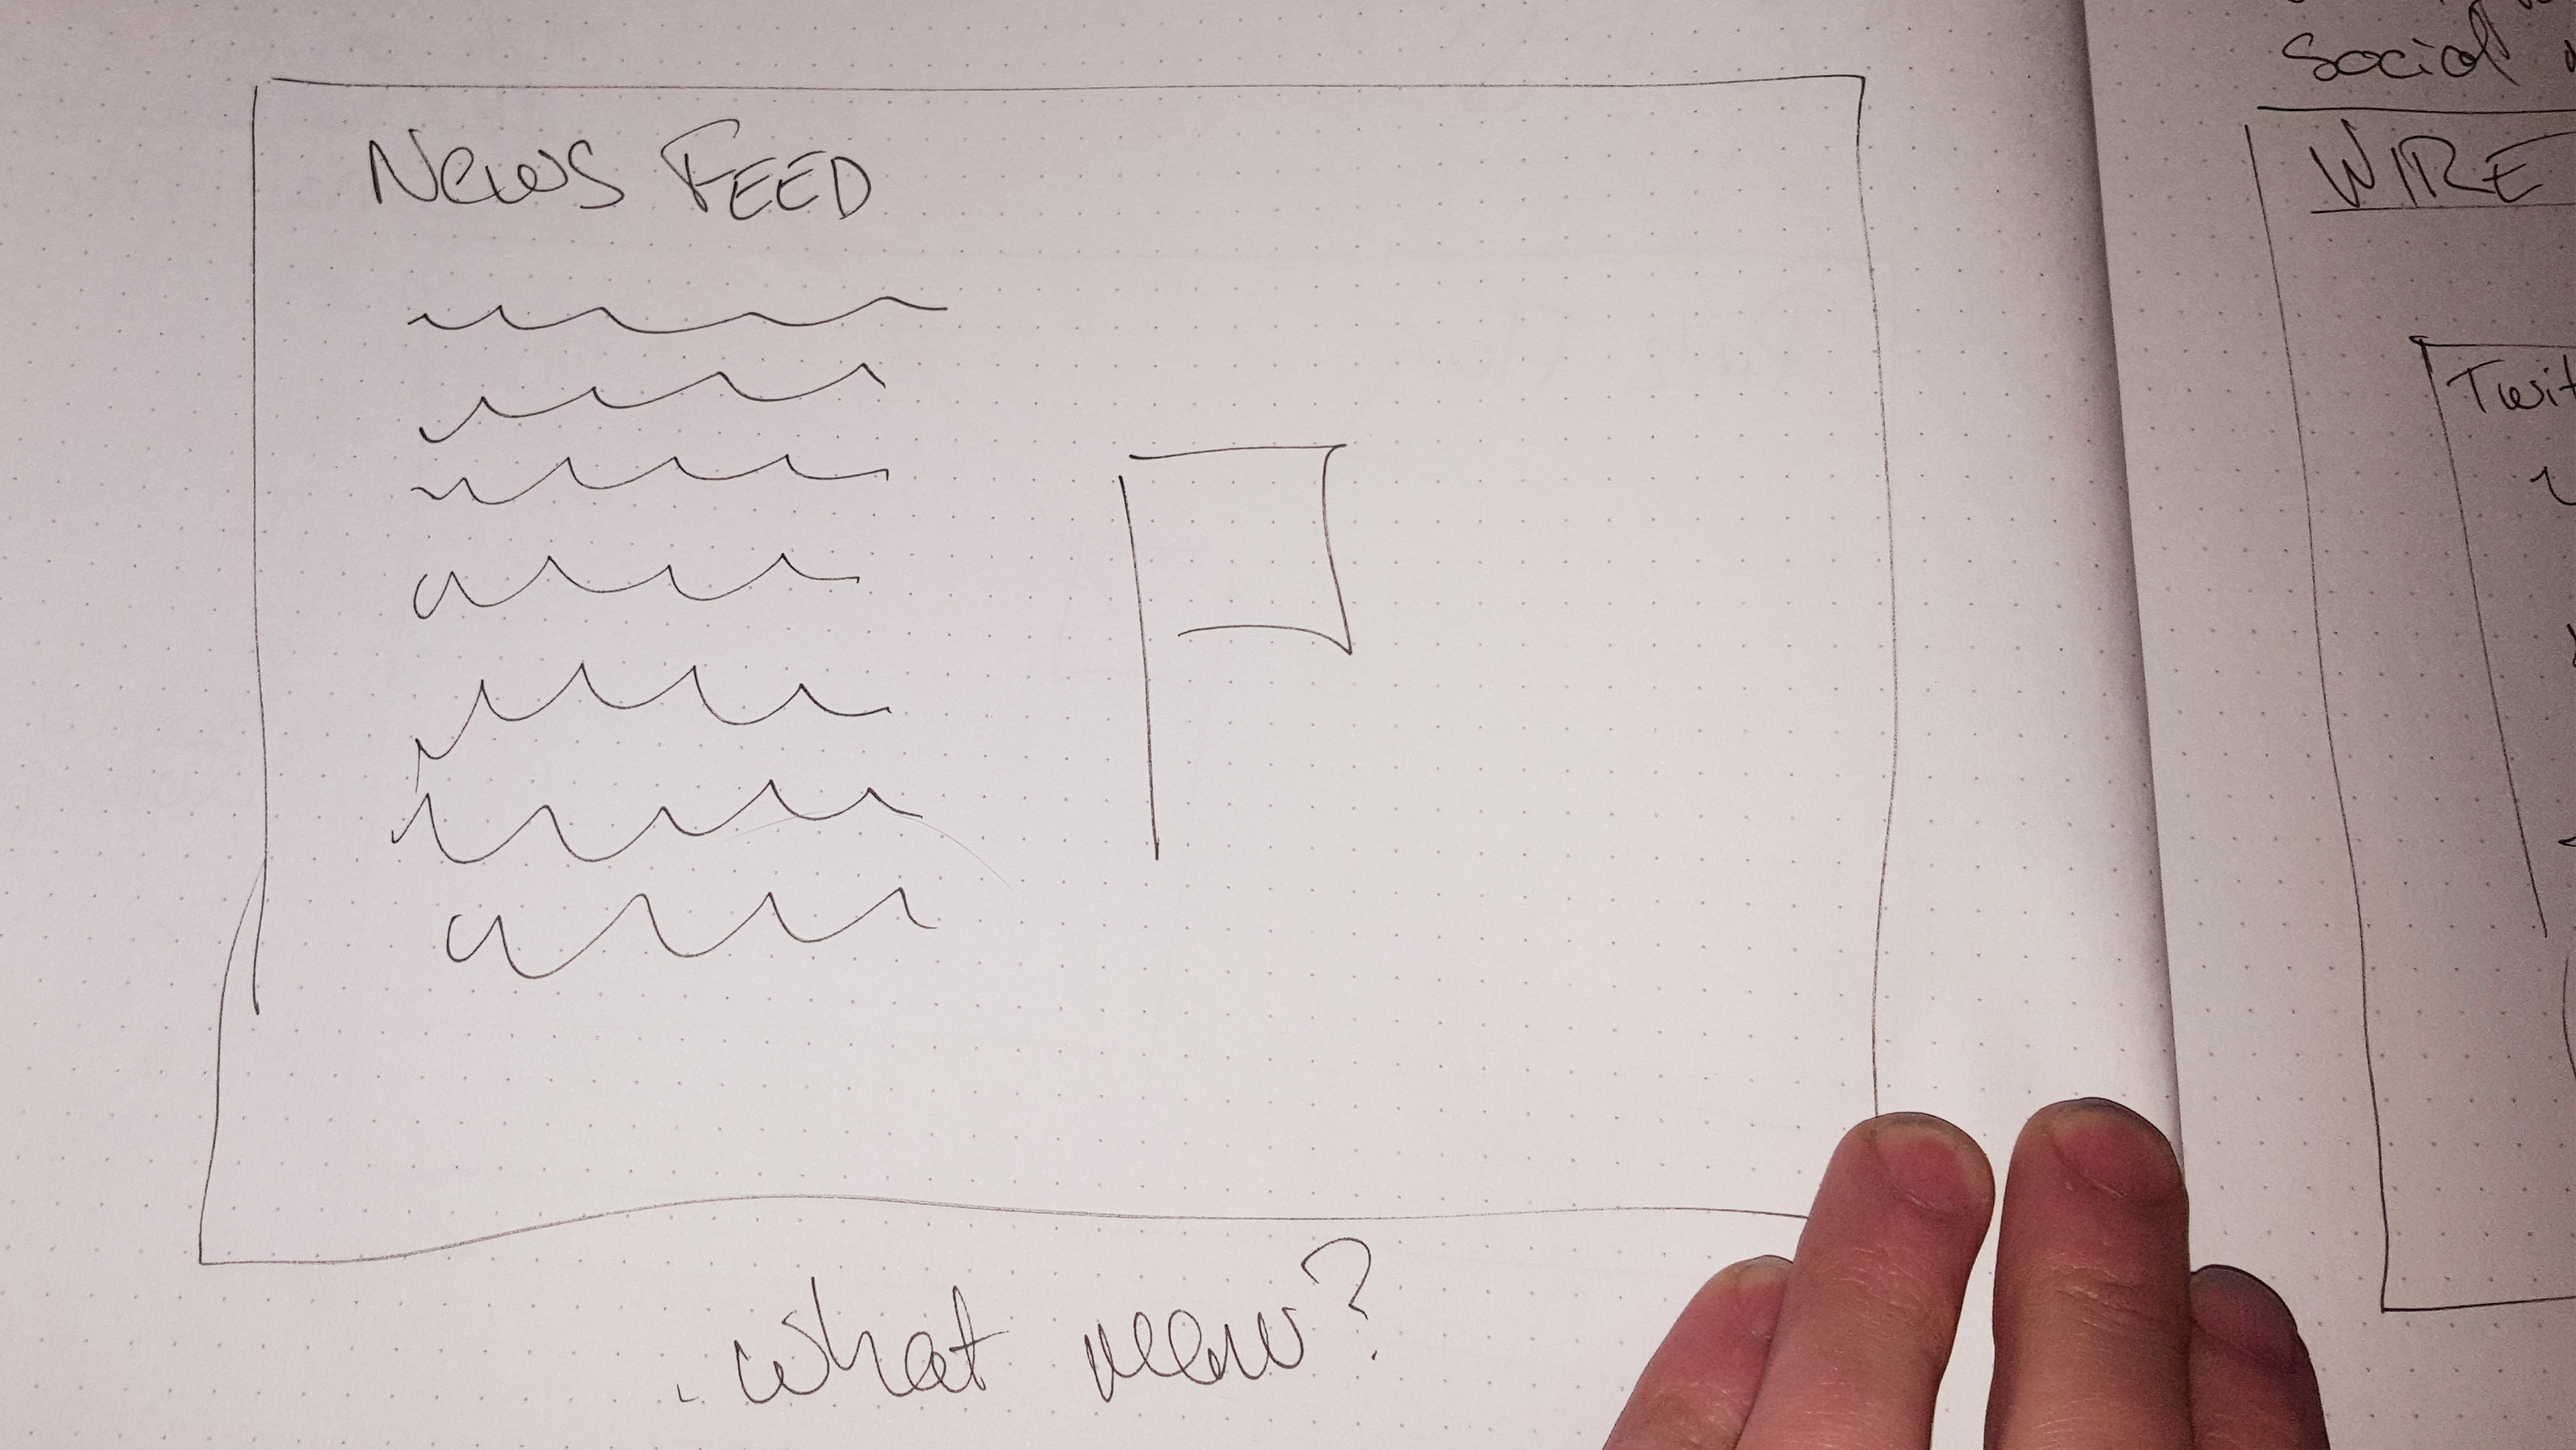 News FEED
What
social
WIRE
Twit